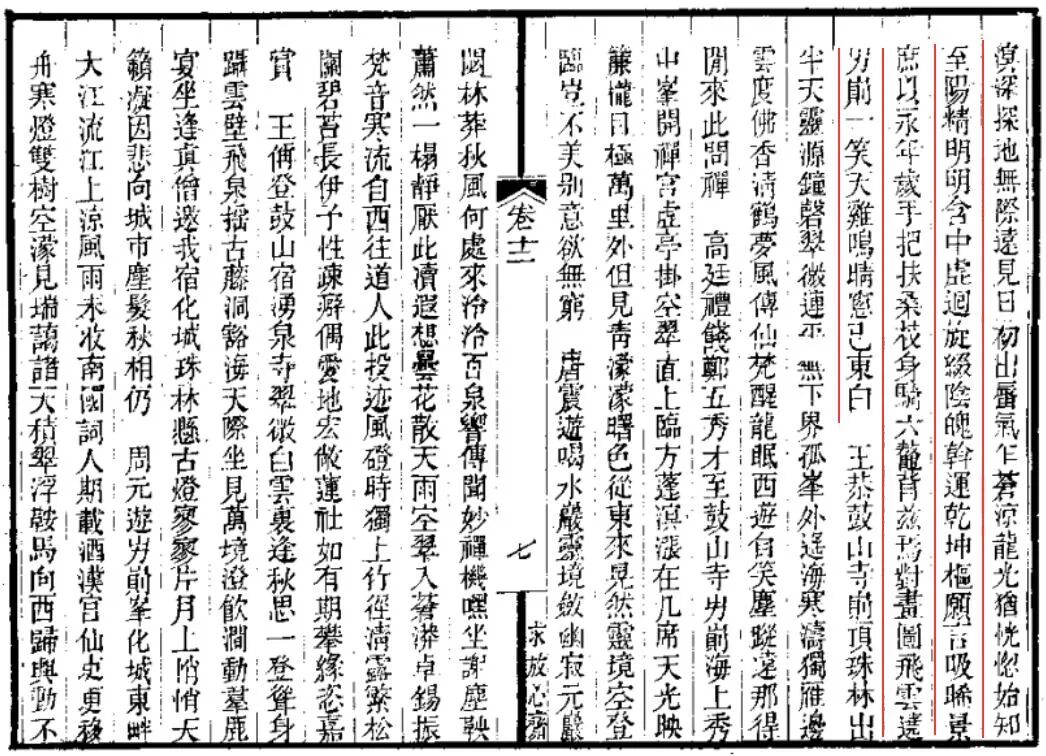 溟深探地無際遠見日初出蜃氣乍蒼涼龍光猶恍惚始知
至陽精明明含中虛迴旋綴陰魄斡運乾坤樞願言吸晞景
庶以永年歲手把扶桑花身騎六鼇背玆焉對畫圖飛雲遶
屴崱一笑天雞鳴晴窻已東白　王恭鼓山寺崱頂珠林出
半天靈源鐘磬翠微連平無下界孤峯外遥海寒濤獨雁邊
雲度佛香淸鶴夢風傳仙梵醒龍眠西遊自笑塵蹤遠那得
閒來此問禪　高廷禮餞鄭五秀才至鼓山寺屴崱海上秀
中峯開禪宮虛亭掛空翠直上臨方蓬溟漲在几席天光映
簾櫳目極萬里外但見靑濛濛曙色從東來晃然靈境空登
臨豈不美别意欲無窮　唐震遊喝水巖靈境斂幽寂元嚴
卷十二
七
求放心齋
閟林莽秋風何處來泠泠百泉響傳聞妙禪機嘿坐謝塵鞅
蕭然一榻靜厭此凟遐想曇花散天雨空翠入蒼漭卓錫振
梵音寒流自西往道人此投迹風磴時獨上竹徑淸露繁松
關碧苔長伊予性疎癖偶愛地宏敞蓮社如有期攀緣恣嘉
賞　王偁登鼓山宿湧泉寺翠微白雲裏逢秋思一登聳身
躡雲壁飛泉挹古藤洞豁海天際坐見萬境澄飲澗動羣鹿
宴坐逢眞僧邀我宿化城珠林懸古燈寥寥片月上悄悄天
籟凝因悲向城市塵髮秋相仍　周元遊屴崱峯化城東畔
大江流江上涼風雨未收南國詞人期載酒漢宮仙史更移
舟寒燈雙樹空濛見瑞藹諸天積翠浮鞍馬向西歸興動不